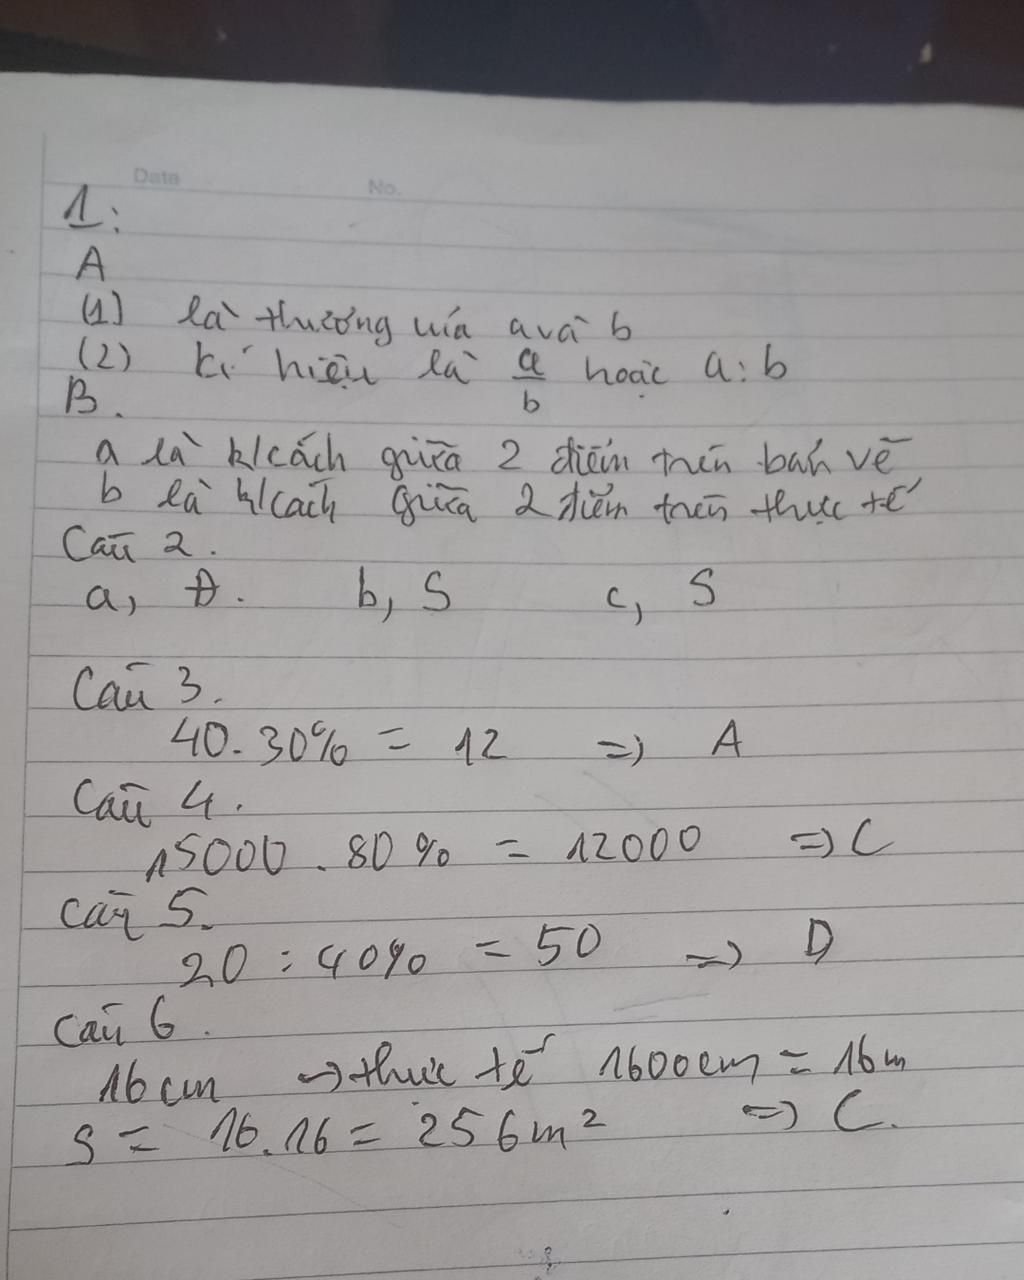 Date No.
1:
A
(1) là thương của a và b
(2) kí hiệu là a/b hoặc a:b
B.
a là k/cách giữa 2 điểm trên bản vẽ
b là k/cách giữa 2 điểm trên thực tế
Câu 2.
a, Đ. b, S c, S
Câu 3.
40.30% = 12 => A
Câu 4.
15000.80% = 12000 => C
Câu 5.
20:40% = 50 => D
Câu 6.
16cm -> thực tế 1600cm = 16m
S = 16.16 = 256m² => C.